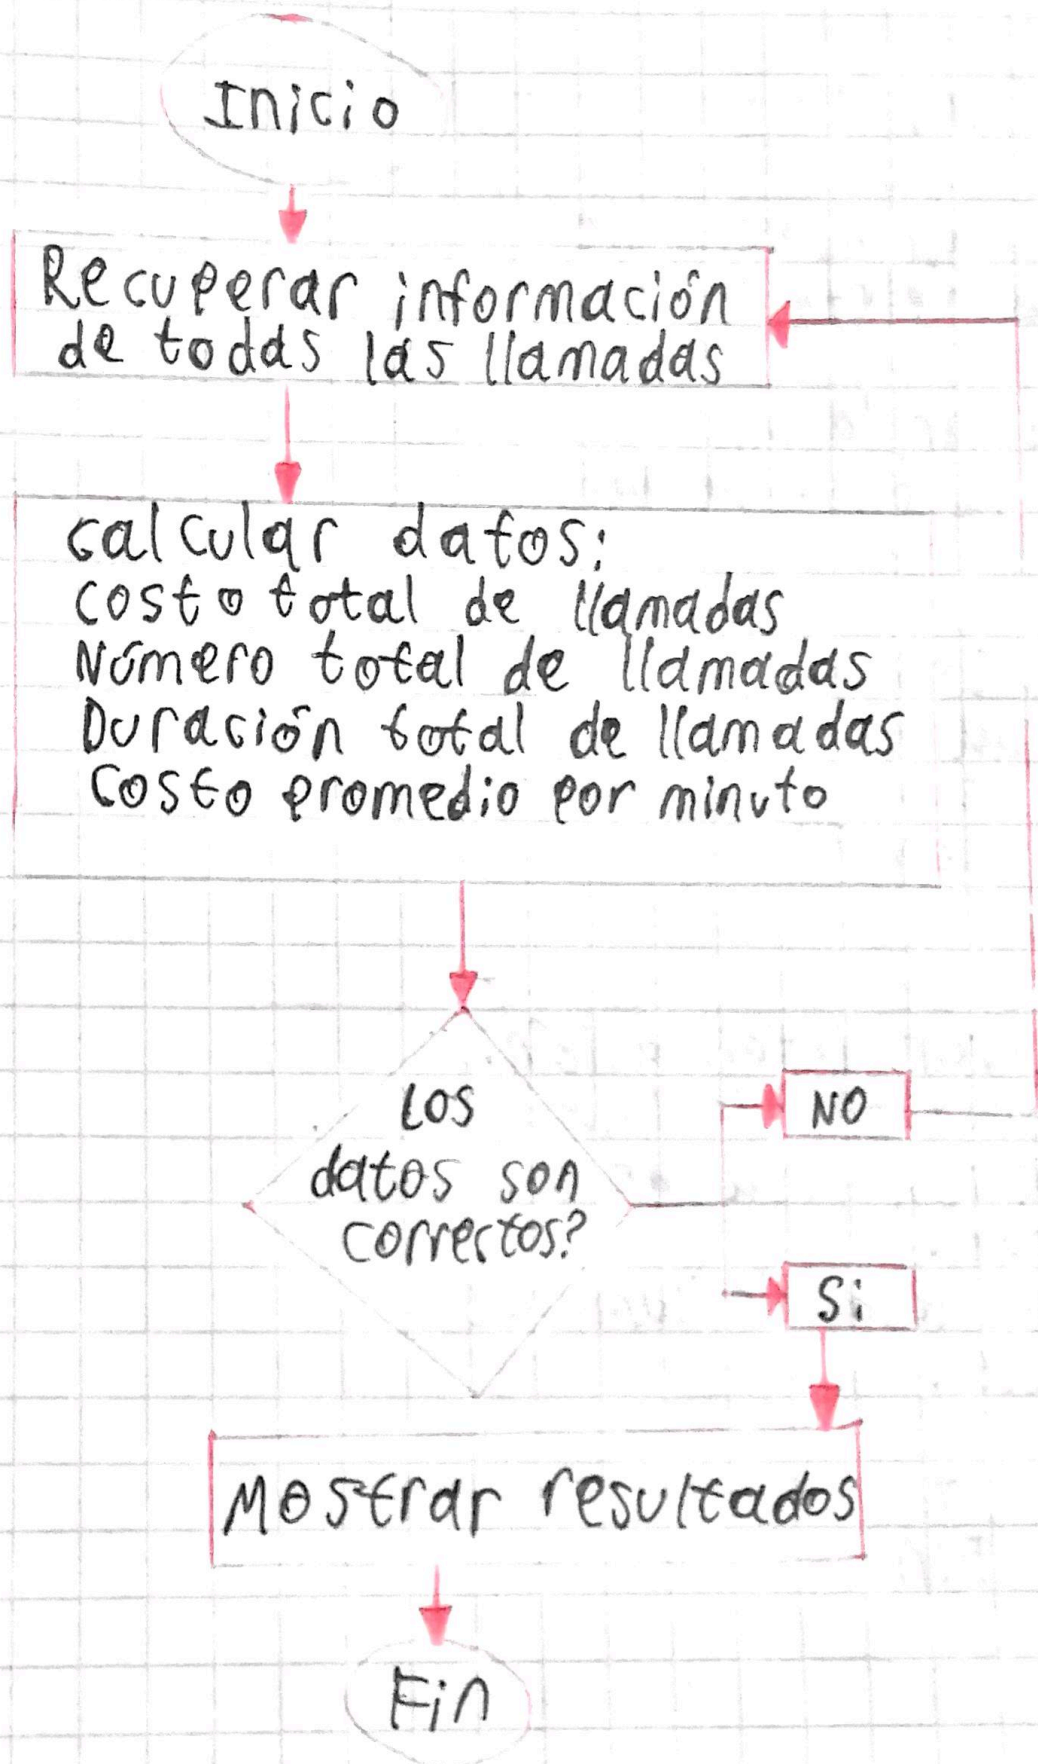 Inicio
Recuperar información
de todas las llamadas
Calcular datos:
Costo total de llamadas
Número total de llamadas
Duración total de llamadas
Costo promedio por minuto
Los
datos son
correctos?
NO
Si
Mostrar resultados
Fin